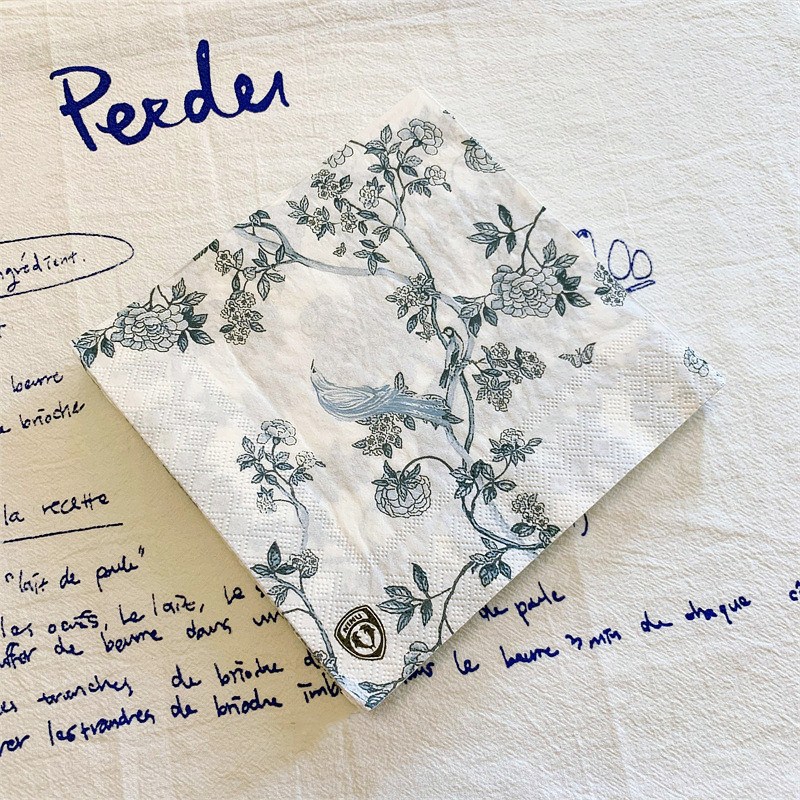 Perdu
ingrédient.
200
beurre
brioche
la recette
"lait de poule"
les œufs, le lait, le s
de beurre dans un de poule
tranches de brioche d le beurre 3 min de chaque c
les tranches de brioche imb